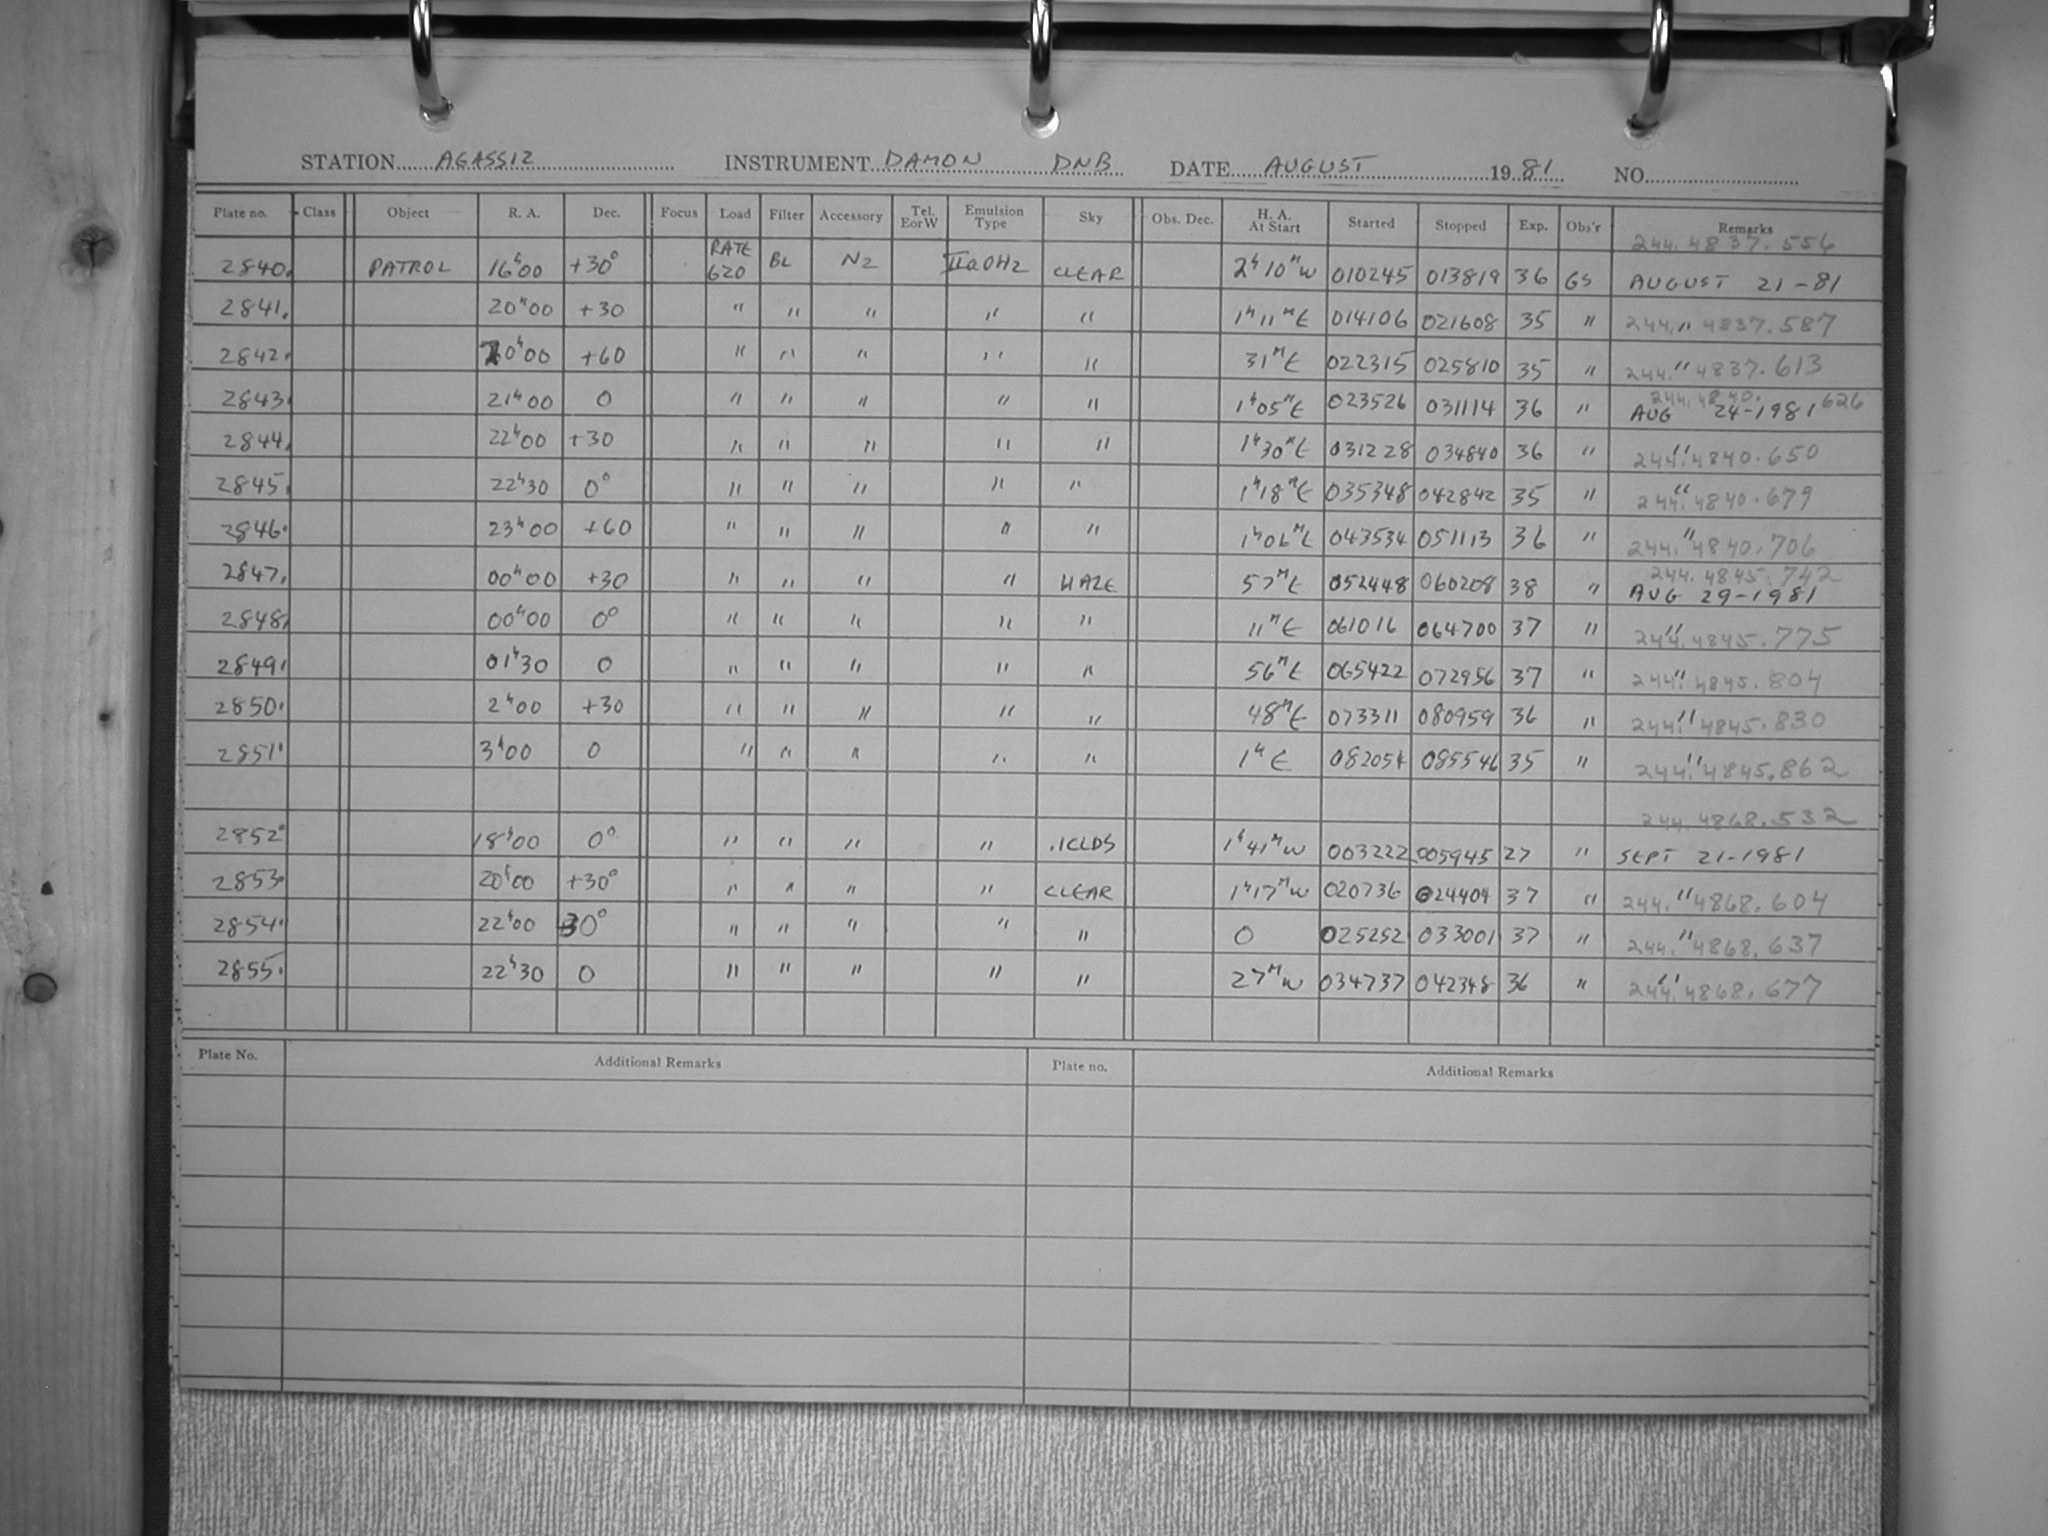 STATION AGASSIZ INSTRUMENT DAMON DNB DATE AUGUST 1981 NO.
Plate no. Class Object R. A. Dec. Focus Load Filter Accessory Tel. E or W Emulsion Type Sky Obs. Dec. H. A. At Start Started Stopped Exp. Obs'r Remarks
244.4837.556
2840. PATROL 16h00 +30° RATE 620 BL N2 IIaOH2 CLEAR 2h10mW 010245 013819 36 GS AUGUST 21-81
2841. 20h00 +30 " " " " " 1h11mE 014106 021608 35 " 244." 4837.587
2842. 20h00 +60 " " " " " 31mE 022315 025810 35 " 244." 4837.613
244.4840.626
2843. 21h00 0 " " " " " 1h05mE 023526 031114 36 " AUG 24-1981
2844. 22h00 +30 " " " " " 1h30mE 031228 034840 36 " 244." 4840.650
2845. 22h30 0° " " " " " 1h18mE 035348 042842 35 " 244." 4840.679
2846. 23h00 +60 " " " " " 1h06mE 043534 051113 36 " 244." 4840.706
244.4845.742
2847. 00h00 +30 " " " " HAZE 57mE 052448 060208 38 " AUG 29-1981
2848. 00h00 0° " " " " " 11mE 061016 064700 37 " 244." 4845.775
2849. 01h30 0 " " " " " 56mE 065422 072956 37 " 244." 4845.804
2850. 2h00 +30 " " " " " 48mE 073311 080959 36 " 244." 4845.830
2851. 3h00 0 " " " " " 1hE 082054 085546 35 " 244." 4845.862
244.4868.532
2852. 18h00 0° " " " " .1CLDS 1h41mW 003222 005945 27 " SEPT 21-1981
2853. 20h00 +30° " " " " CLEAR 1h17mW 020736 024404 37 " 244." 4868.604
2854. 22h00 30° " " " " " 0 025252 033001 37 " 244." 4868.637
2855. 22h30 0 " " " " " 27mW 034737 042348 36 " 244." 4868.677
Plate No. Additional Remarks Plate no. Additional Remarks